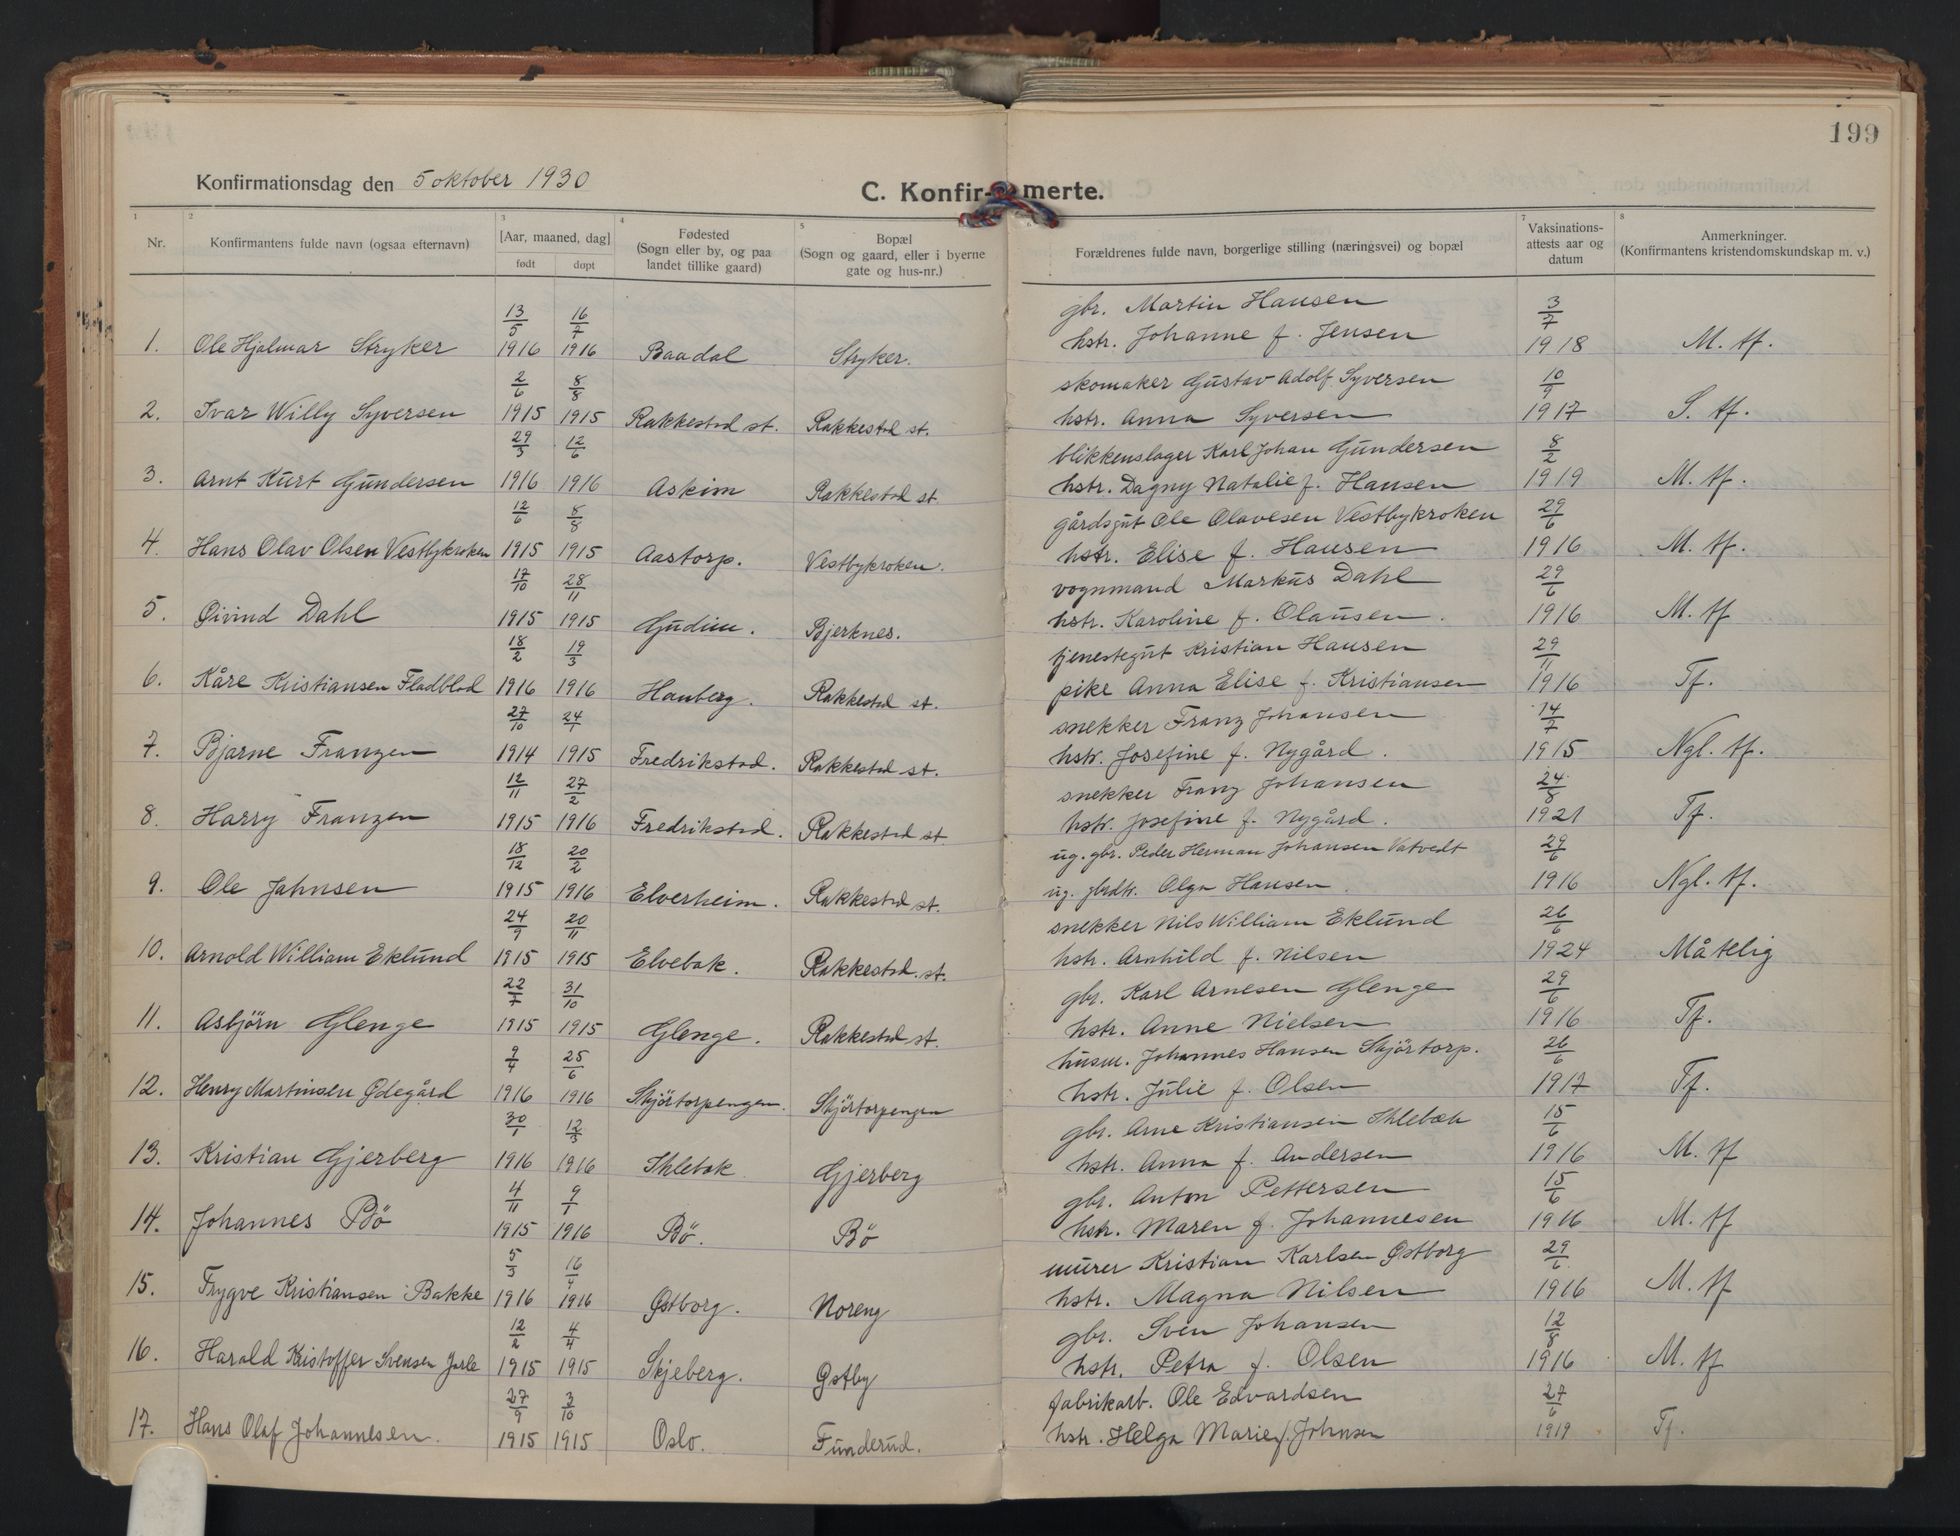 199
Konfirmationsdag den 5 oktober 1930
C. Konfir- merte.
1 2 3 4 5 6 7 8
Nr. Konfirmantens fulde navn (ogsaa efternavn) [Aar, maaned, dag] født døpt Fødested (Sogn eller by, og paa landet tillike gaard) Bopæl (Sogn og gaard, eller i byerne gate og hus-nr.) Forældrenes fulde navn, borgerlige stilling (næringsvei) og bopæl Vaksinations-attests aar og datum Anmerkninger. (Konfirmantens kristendomskundskap m. v.)
13/5 16/7 gbr. Martin Hansen 3/7
1. Ole Hjalmar Stryker 1916 1916 Baadal Stryker. hstr. Johanne f. Jensen 1918 M. tf.
2/6 8/8 skomaker Gustav Adolf Syversen 10/9
2. Ivar Willy Syversen 1915 1915 Rakkestad st. Rakkestad st. hstr. Anna Syversen 1917 S. tf.
29/3 12/6 blikkenslager Karl Johan Gundersen 8/2
3. Arnt Kurt Gundersen 1916 1916 Askim Rakkestad st. hstr. Dagny Natalie f. Hansen 1919 M. tf.
12/6 8/8 gårdsgut Ole Olavesen Vestbykroken 29/6
4. Hans Olav Olsen Vestbykroken 1915 1915 Aastorp. Vestbykroken. hstr. Elise f. Hansen 1916 M. tf.
17/10 28/11 vognmand Markus Dahl 29/6
5. Øivind Dahl 1915 1915 Gudim. Bjerknes. hstr. Karoline f. Olausen. 1916 M. tf
18/2 19/3 tjenestegut Kristian Hansen 29/11
6. Kåre Kristiansen Fladblad 1916 1916 Hauberg. Rakkestad st. pike Anna Elise f. Kristiansen 1916 Tf.
27/10 24/1 snekker Franz Johansen 14/7
7. Bjarne Franzen 1914 1915 Fredrikstad. Rakkestad st. hstr. Josefine f. Nygård. 1915 Ngl. tf.
12/11 27/2 snekker Franz Johansen 24/8
8. Harry Franzen 1915 1916 Fredrikstad. Rakkestad st hstr. Josefine f. Nygård. 1921 Tf.
18/12 20/2 ug. gbr. Peder Herman Johansen Vatvedt 29/6
9. Ole Jahnsen 1915 1916 Elverheim. Rakkestad st. ug. gbrdtr. Olga Hansen. 1916 Ngl. tf.
24/9 20/11 snekker Nils William Eklund 26/6
10. Arnold William Eklund 1915 1915 Elvebak. Rakkestad. st. hstr. Arnhild f. Nilsen 1924 Måtelig
22/7 31/10 gbr. Karl Arnesen Glenge 29/6
11. Asbjörn Glenge 1915 1915 Glenge. Rakkestad st. hstr. Anne Nielsen 1916 Tf.
9/4 25/6 husm. Johannes Hansen Skjörtorp. 26/6
12. Henry Martinsen Ødegård 1916 1916 Skjörtorpengen. Skjörtorpengen hstr. Julie f. Olsen 1917 Tf.
30/1 12/3 gbr. Arne Kristiansen Ihlebæk 15/6
13. Kristian Gjerberg 1916 1916 Ihlebak Gjerberg hstr. Anna f. Andersen 1916 M. tf
4/11 9/1 gbr. Anton Pettersen 15/6
14. Johannes Bö 1915 1916 Bö. Bö hstr. Maren f. Johannesen 1916 M. tf
5/3 16/4 murer Kristian Karlsen Østborg 29/6
15. Trygve Kristiansen Bakke 1916 1916 Østborg. Noreng hstr. Magna Nilsen 1916 M. tf
12/2 4/4 gbr. Sven Johansen 12/8
16. Harald Kristoffer Svensen Jarle 1915 1915 Skjeberg. Østby hstr. Petra f. Olsen 1916 M. tf
27/9 3/10 fabrikarb. Ole Edvardsen 27/6
17. Hans Olaf Johannesen. 1915 1915 Oslo. Funderud. hstr. Helga Marie f. Johnsen 1919 Tf.